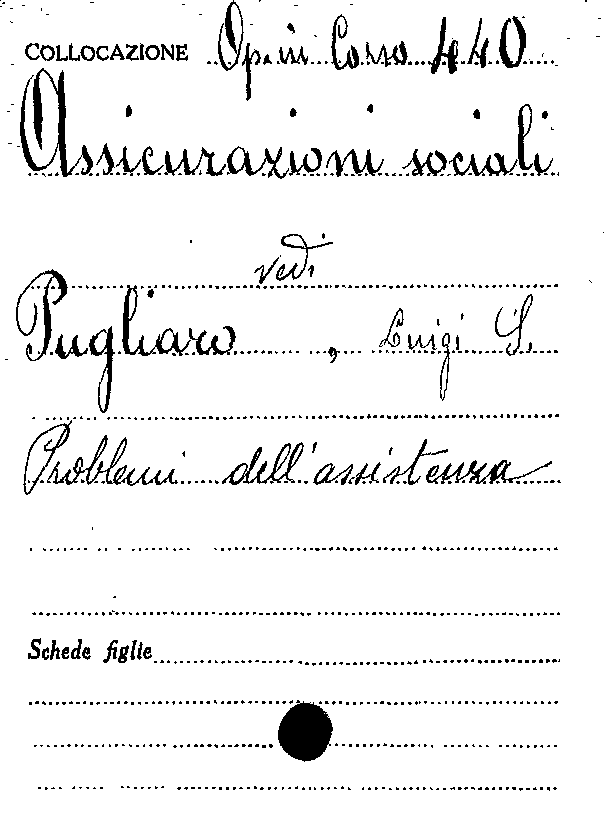 COLLOCAZIONE Op. in Corso 440
Assicurazioni sociali
vedi
Pugliaro, Luigi S.
Problemi dell'assistenza
Schede figlie